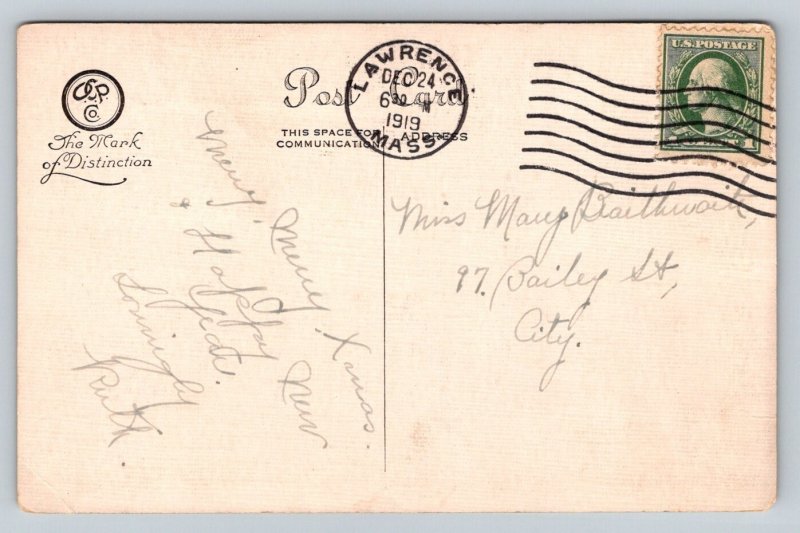 CSP Co.
The Mark
of Distinction
Post Card
THIS SPACE FOR
COMMUNICATION
ADDRESS
LAWRENCE
DEC 24
6 30
1919
MASS.
U.S. POSTAGE
1
Merry, Merry Xmas.
& Happy New
Year.
Lovingly
Ruth.
Miss Mary Braithwaite,
97. Bailey St,
City.